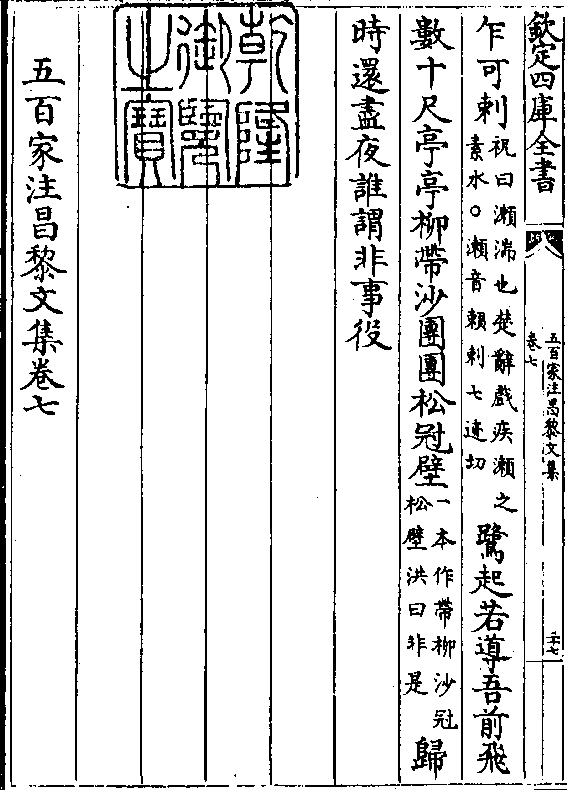 欽定四庫全書
五百家注昌黎文集
卷七
二十七
乍可刺祝曰瀨湍也楚辭戲疾瀨之素水○瀨音賴刺七迹切鷺起若導吾前飛
數十尺亭亭柳帶沙團團松冠壁一本作帶柳沙冠松壁洪曰非是歸
時還盡夜誰謂非事役
乾隆御覽之寶
五百家注昌黎文集卷七